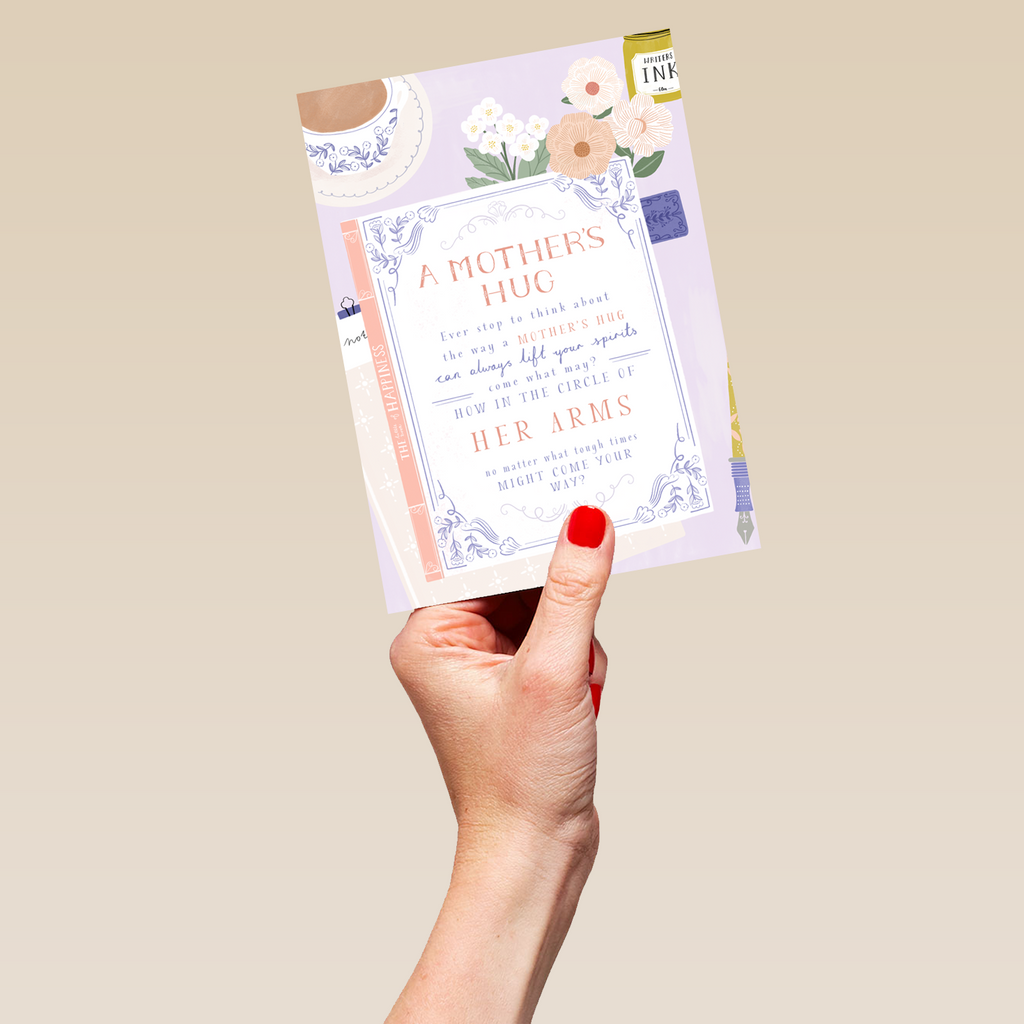 WRITERS
INK
A MOTHER'S
HUG
Ever stop to think about
the way a MOTHER'S HUG
can always lift your spirits
come what may?
HOW IN THE CIRCLE OF
HER ARMS
no matter what tough times
MIGHT COME YOUR
WAY?
THE HAPPINESS
not